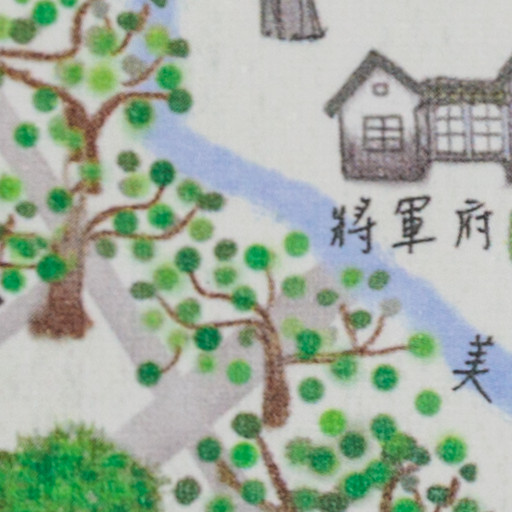 將軍府
美